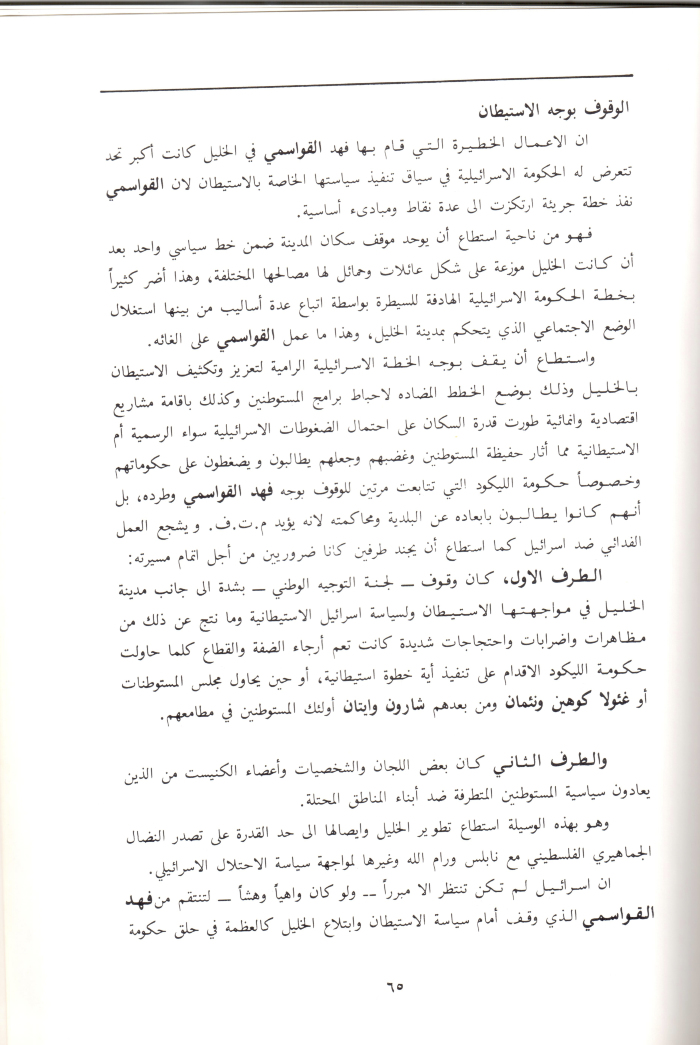 الوقوف بوجه الاستيطان
ان الاعمال الخطيرة التي قام بها فهد القواسمي في الخليل كانت أكبر تحد
تتعرض له الحكومة الاسرائيلية في سياق تنفيذ سياستها الخاصة بالاستيطان لان القواسمي
نفذ خطة جريئة ارتكزت الى عدة نقاط ومبادىء أساسية.
فهو من ناحية استطاع أن يوحد موقف سكان المدينة ضمن خط سياسي واحد بعد
أن كانت الخليل موزعة على شكل عائلات وحمائل لها مصالحها المختلفة، وهذا أضر كثيراً
بخطة الحكومة الاسرائيلية الهادفة للسيطرة بواسطة اتباع عدة أساليب من بينها استغلال
الوضع الاجتماعي الذي يتحكم بمدينة الخليل، وهذا ما عمل القواسمي على الغائه.
واستطاع أن يقف بوجه الخطة الاسرائيلية الرامية لتعزيز وتكثيف الاستيطان
بالخليل وذلك بوضع الخطط المضاده لاحباط برامج المستوطنين وكذلك باقامة مشاريع
اقتصادية وانمائية طورت قدرة السكان على احتمال الضغوطات الاسرائيلية سواء الرسمية أم
الاستيطانية مما أثار حفيظة المستوطنين وغضبهم وجعلهم يطالبون ويضغطون على حكوماتهم
وخصوصاً حكومة الليكود التي تتابعت مرتين للوقوف بوجه فهد القواسمي وطرده، بل
أنهم كانوا يطالبون بابعاده عن البلدية ومحاكمته لانه يؤيد م.ت.ف. ويشجع العمل
الفدائي ضد اسرائيل كما استطاع أن يجند طرفين كانا ضروريين من أجل اتمام مسيرته:
الطرف الاول، كان وقوف — لجنة التوجيه الوطني — بشدة الى جانب مدينة
الخليل في مواجهتها الاستيطان ولسياسة اسرائيل الاستيطانية وما نتج عن ذلك من
مظاهرات واضرابات واحتجاجات شديدة كانت تعم أرجاء الضفة والقطاع كلما حاولت
حكومة الليكود الاقدام على تنفيذ أية خطوة استيطانية، أو حين يحاول مجلس المستوطنات
أو غئولا كوهين ونئمان ومن بعدهم شارون وايتان أولئك المستوطنين في مطامعهم.
والطرف الثاني كان بعض اللجان والشخصيات وأعضاء الكنيست من الذين
يعادون سياسية المستوطنين المتطرفة ضد أبناء المناطق المحتلة.
وهو بهذه الوسيلة استطاع تطوير الخليل وايصالها الى حد القدرة على تصدر النضال
الجماهيري الفلسطيني مع نابلس ورام الله وغيرها لمواجهة سياسة الاحتلال الاسرائيلي.
ان اسرائيل لم تكن تنتظر الا مبرراً -- ولو كان واهياً وهشاً — لتنتقم من فهد
القواسمي الذي وقف أمام سياسة الاستيطان وابتلاع الخليل كالعظمة في حلق حكومة
٦٥